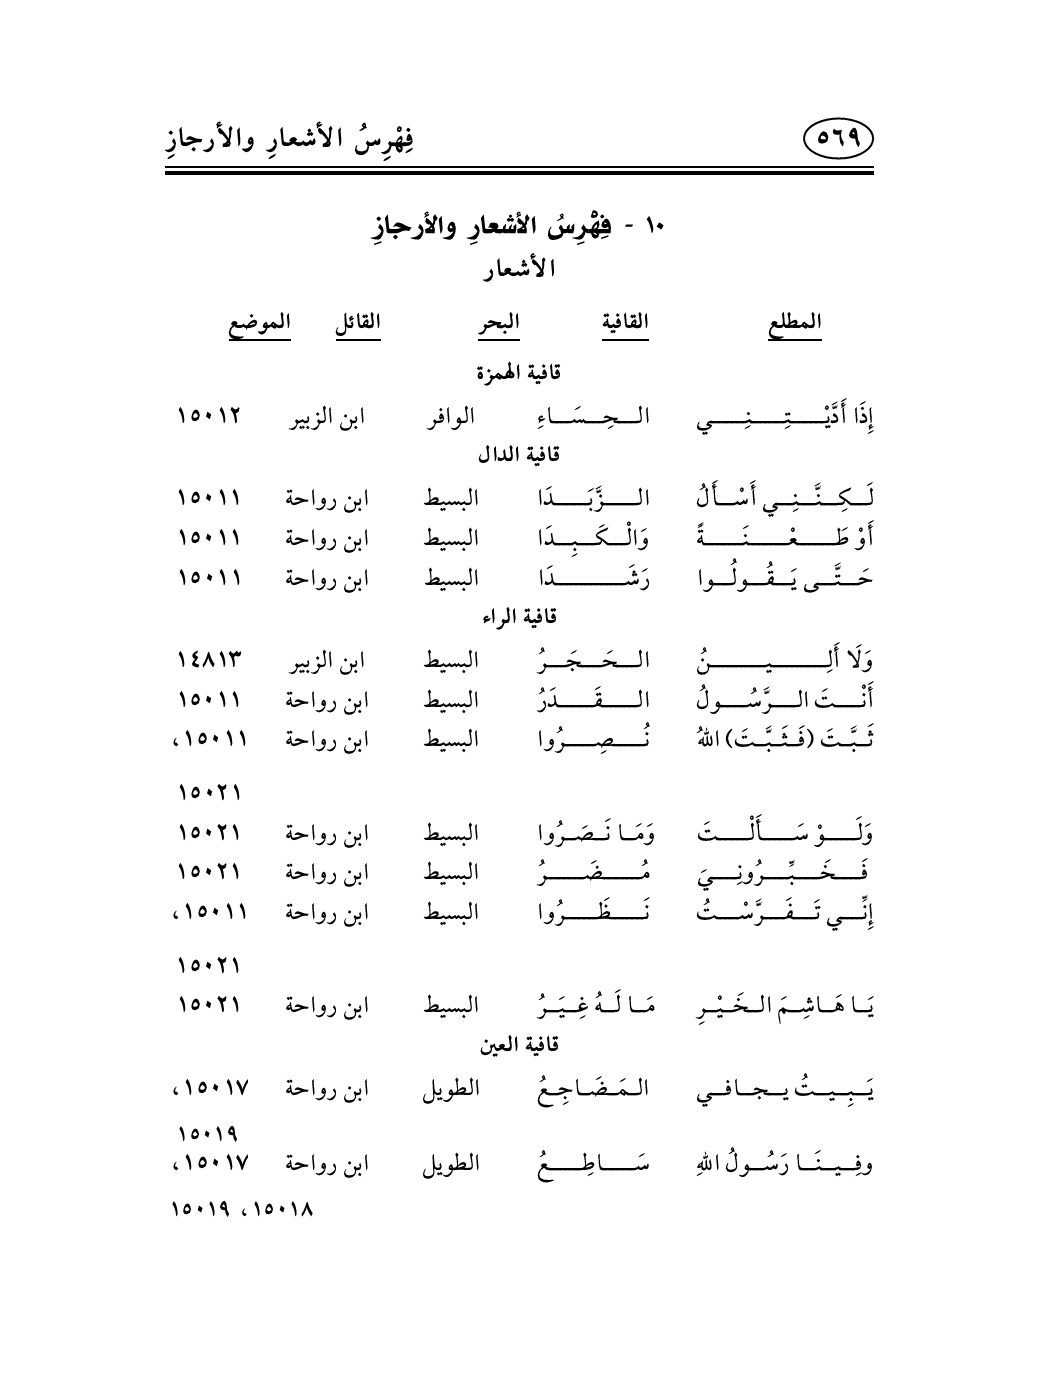 ٥٦٩ فِهْرِسُ الأشعارِ والأرجازِ
١٠ - فِهْرِسُ الأشعارِ والأرجازِ
الأشعار
المطلع القافية البحر القائل الموضع
قافية الهمزة
إِذَا أَدَّيْتِنِي الحِسَاءِ الوافر ابن الزبير ١٥٠١٢
قافية الدال
لَكِنَّنِي أَسْأَلُ الزَّبَدَا البسيط ابن رواحة ١٥٠١١
أَوْ طَعْنَةً وَالْكَبِدَا البسيط ابن رواحة ١٥٠١١
حَتَّى يَقُولُوا رَشَدَا البسيط ابن رواحة ١٥٠١١
قافية الراء
وَلَا أَلِينُ الحَجَرُ البسيط ابن الزبير ١٤٨١٣
أَنْتَ الرَّسُولُ القَدَرُ البسيط ابن رواحة ١٥٠١١
ثَبَّتَ (فَثَبَّتَ) اللهُ نُصِرُوا البسيط ابن رواحة ١٥٠١١،
١٥٠٢١
وَلَوْ سَأَلْتَ وَمَا نَصَرُوا البسيط ابن رواحة ١٥٠٢١
فَخَبِّرُونِيَ مُضَرُ البسيط ابن رواحة ١٥٠٢١
إِنِّي تَفَرَّسْتُ نَظَرُوا البسيط ابن رواحة ١٥٠١١،
١٥٠٢١
يَا هَاشِمَ الخَيْرِ مَا لَهُ غِيَرُ البسيط ابن رواحة ١٥٠٢١
قافية العين
يَبِيتُ يجافي المَضَاجِعُ الطويل ابن رواحة ١٥٠١٧،
١٥٠١٩
وفِينَا رَسُولُ اللهِ سَاطِعُ الطويل ابن رواحة ١٥٠١٧،
١٥٠١٨، ١٥٠١٩